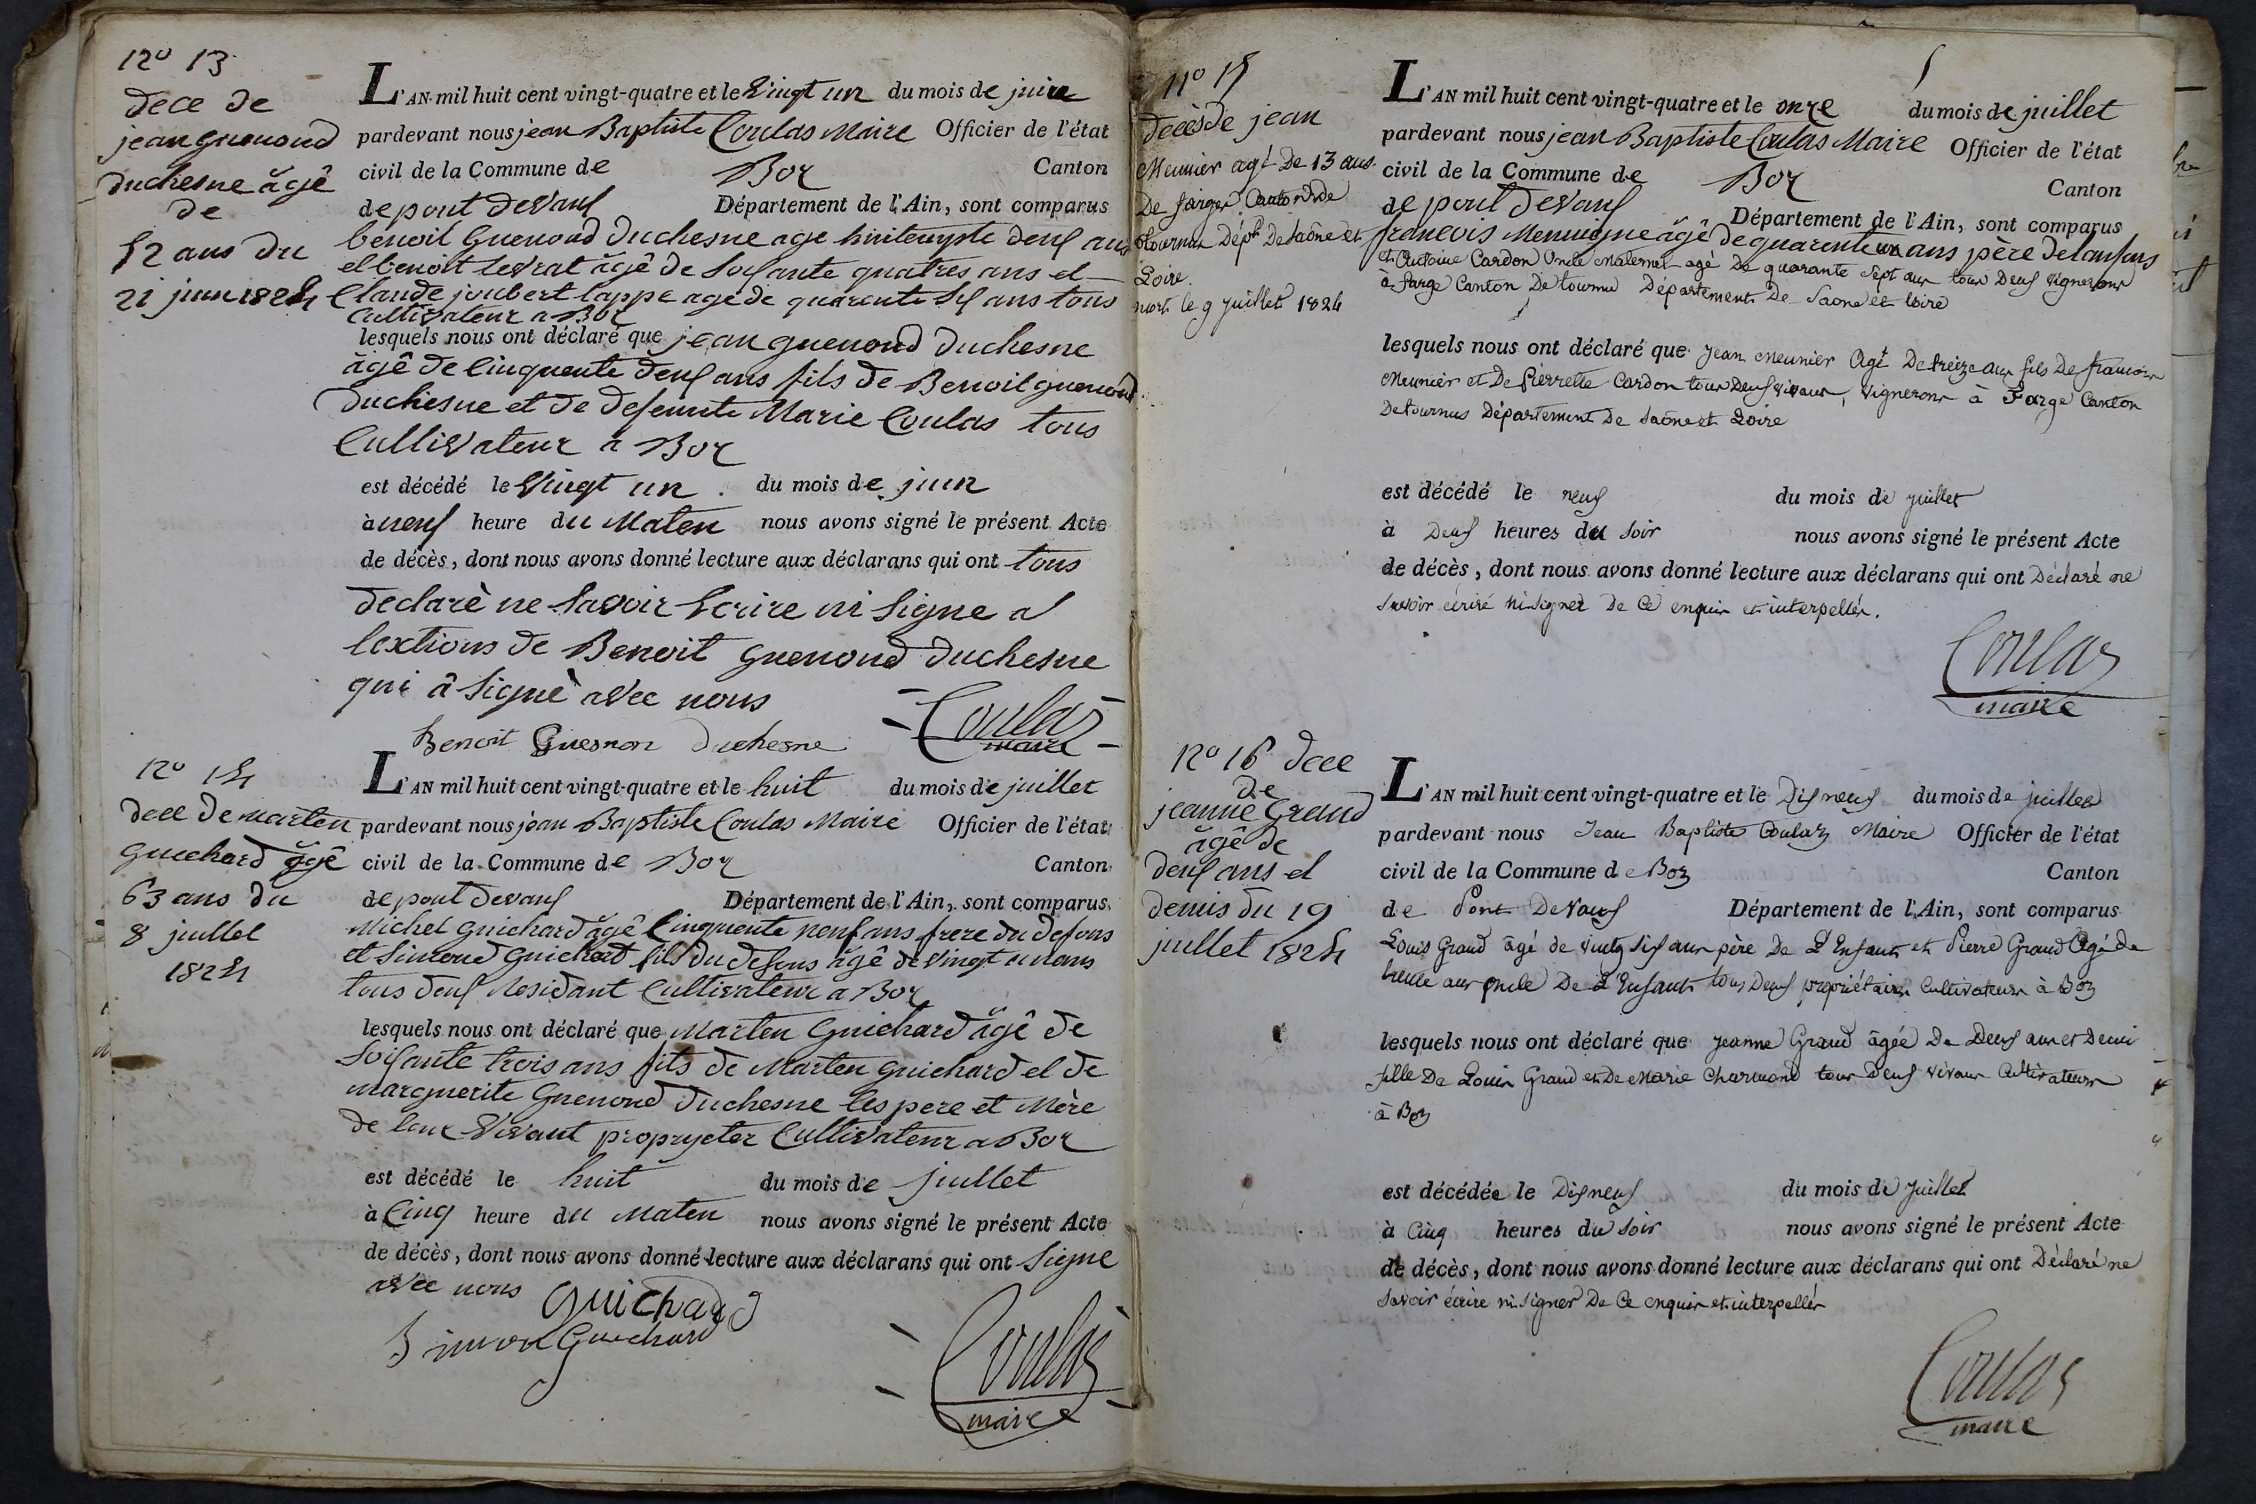 no 13
dece de
jean guenoud
duchesne âgê
de
52 ans du
21 juin 1824
L'AN mil huit cent vingt-quatre et le vingt un du mois de juin
pardevant nous jean Baptiste Coulas Maire Officier de l'état
civil de la Commune de Boz Canton
de pont devaux Département de l'Ain, sont comparus
benoit Guenoud duchesne age huitempte deux ans
et benoit levrat âgê de Soisante quatres ans et
Claude joubert lappe age de quarente six ans tous
Cultivateur a Boz
lesquels nous ont déclaré que jean guenoud duchesne
âgê de Cinquente deux ans fils de Benoit guenoud
duchesne et de defeunte Marie Coulas tous
Cultivateur a Boz
est décédé le Vingt un du mois de juin
à neuf heure du Maten nous avons signé le présent Acte
de décès, dont nous avons donné lecture aux déclarans qui ont tous
declarè ne savoir Ecrire ni Signe a
lextions de Benoit guenoud duchesne
qui â Signè avec nous
Benoit Guesnon duchesne Coulas
maire
no 14
dece de marten
guichard âgê
63 ans du
8 juillet
1824
L'AN mil huit cent vingt-quatre et le huit du mois de juillet
pardevant nous jean Baptiste Coulas Maire Officier de l'état
civil de la Commune de Boz Canton
de pont devaux Département de l'Ain, sont comparus
Michel guichard âgê Cinquente neuf ans frere du defons
et Simond guichard fils du defons âgê de vingt un ans
tous deux Residant Cultivateur a Boz
lesquels nous ont déclaré que Marten Guichard âgê de
Soisante trois ans fils de Marten guichard et de
marguerite Guenoud duchesne les pere et Mère
de leur Vivant propryeter Cultivateur a Boz
est décédé le huit du mois de juillet
à Cinq heure du Maten nous avons signé le présent Acte
de décès, dont nous avons donné lecture aux déclarans qui ont Signe
avec nous guichard
Simon Guichard
Coulas
maire
no 15
decès de jean
Meunier agé De 13 ans
De farges Canton de
tournus Dépt De saône et
Loire
mort le 9 juillet 1824
L'AN mil huit cent vingt-quatre et le onze du mois de juillet
pardevant nous jean Baptiste Coulas Maire Officier de l'état
civil de la Commune de Boz Canton
de pont devaux Département de l'Ain, sont comparus
francois Menuigne âgê de quarente un ans père de lanfans
et Antoine Cardon Oncle Maternel agé De quarante sept ans tous Deux Vignerons
à Farge Canton De tournu Département De Saone et Loire
lesquels nous ont déclaré que Jean Meunier Agé De treize ans fils De francois
Meunier et De Pierrette Cardon tous Deux vivans, Vignerons à Farge Canton
De tournus Département De Saône et Loire
est décédé le neuf du mois de juillet
à Deux heures du soir nous avons signé le présent Acte
de décès, dont nous avons donné lecture aux déclarans qui ont Déclaré ne
savoir écrire ni signer De Ce enquis et interpellés.
Coulas
maire
no 16 dece
de
jeanne Grand
âgê de
deux ans et
demis du 19
juillet 1824
L'AN mil huit cent vingt-quatre et le Dix neuf du mois de juillet
pardevant nous Jean Baptiste Coulas Maire Officier de l'état
civil de la Commune de Boz Canton
de Pont De Vaux Département de l'Ain, sont comparus
Louis Grand âgé de vingt six ans père De L'Enfant et Pierre Grand Agé de
trente ans oncle De L'Enfant tous Deux propriétaires Cultivateurs à Boz
lesquels nous ont déclaré que Jeanne Grand âgée De Deux ans et Demi
fille De Louis Grand et De Marie Charmond tous Deux vivans Cultivateurs
à Boz
est décédée le Dix neuf du mois de Juillet
à Cinq heures du soir nous avons signé le présent Acte
de décès, dont nous avons donné lecture aux déclarans qui ont Déclaré ne
savoir écrire ni signer De Ce enquis et interpellés
Coulas
maire